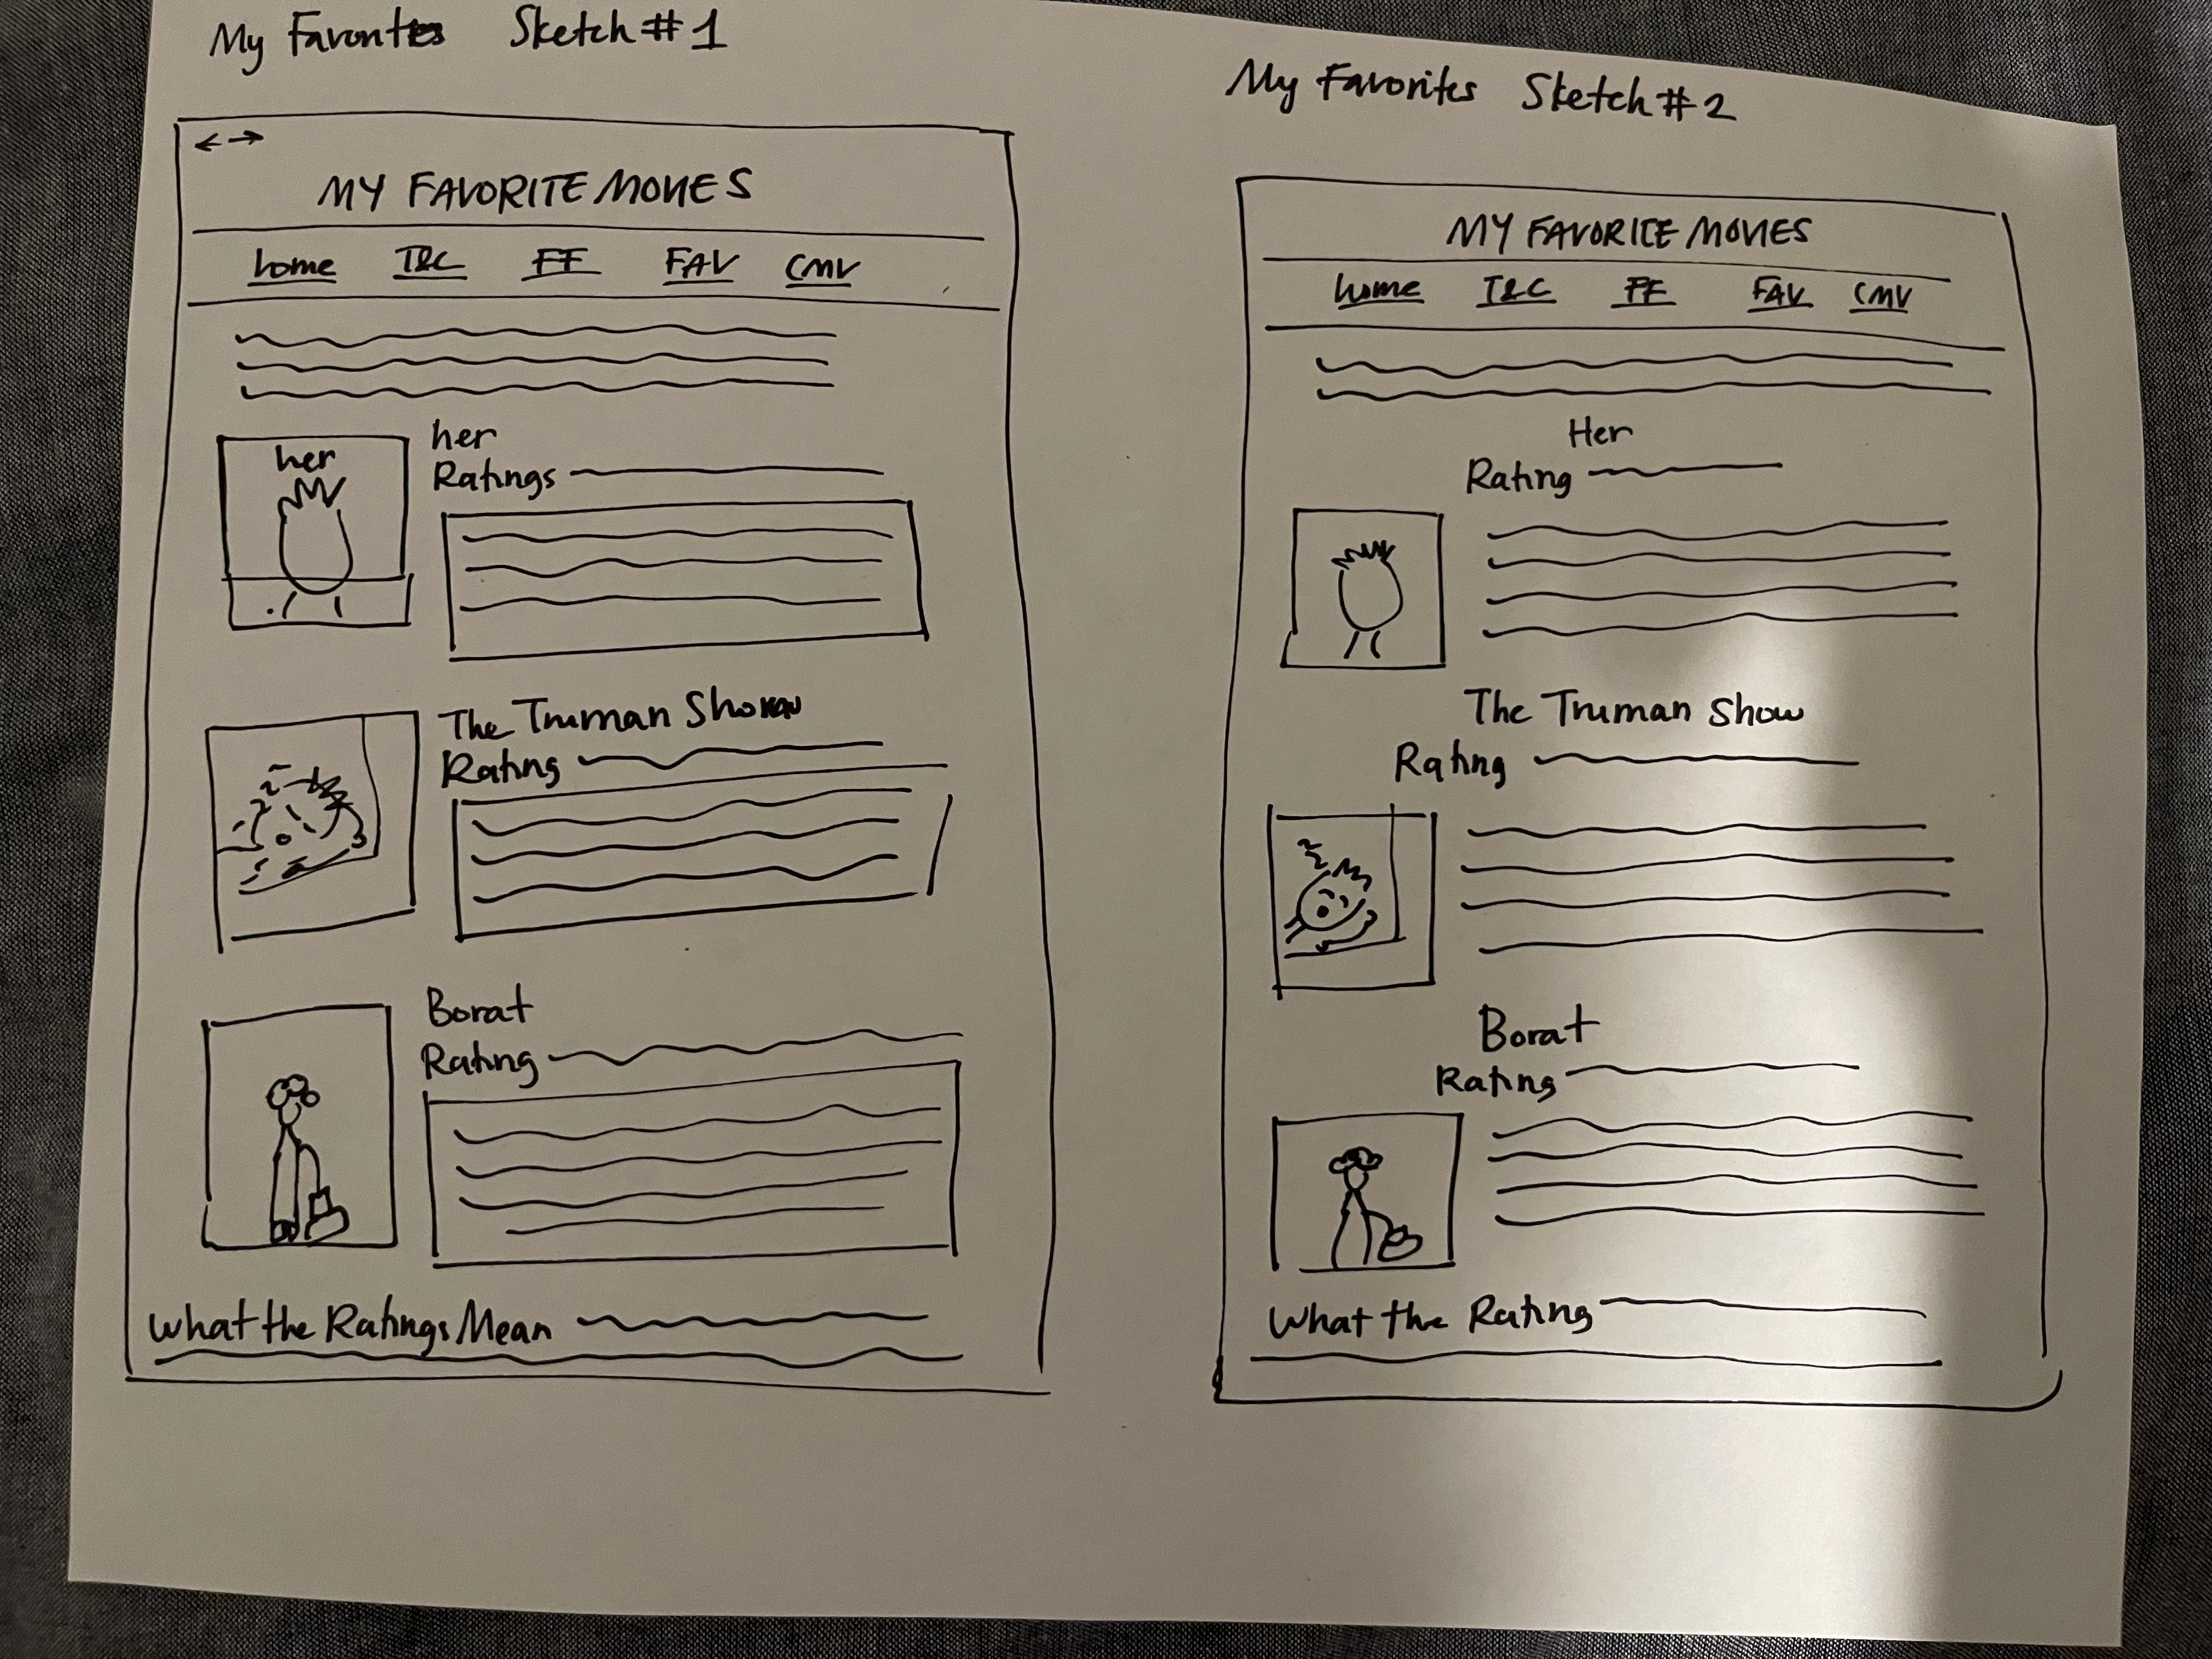 My Favorites Sketch #1
MY FAVORITE MOVIES
home I&C FF FAV CMV
her
her
Ratings
The Truman Show
Rating
Borat
Rating
What the Ratings Mean
My Favorites Sketch #2
MY FAVORITE MOVIES
home I&C FF FAV CMV
Her
Rating
The Truman Show
Rating
Borat
Rating
What the Rating